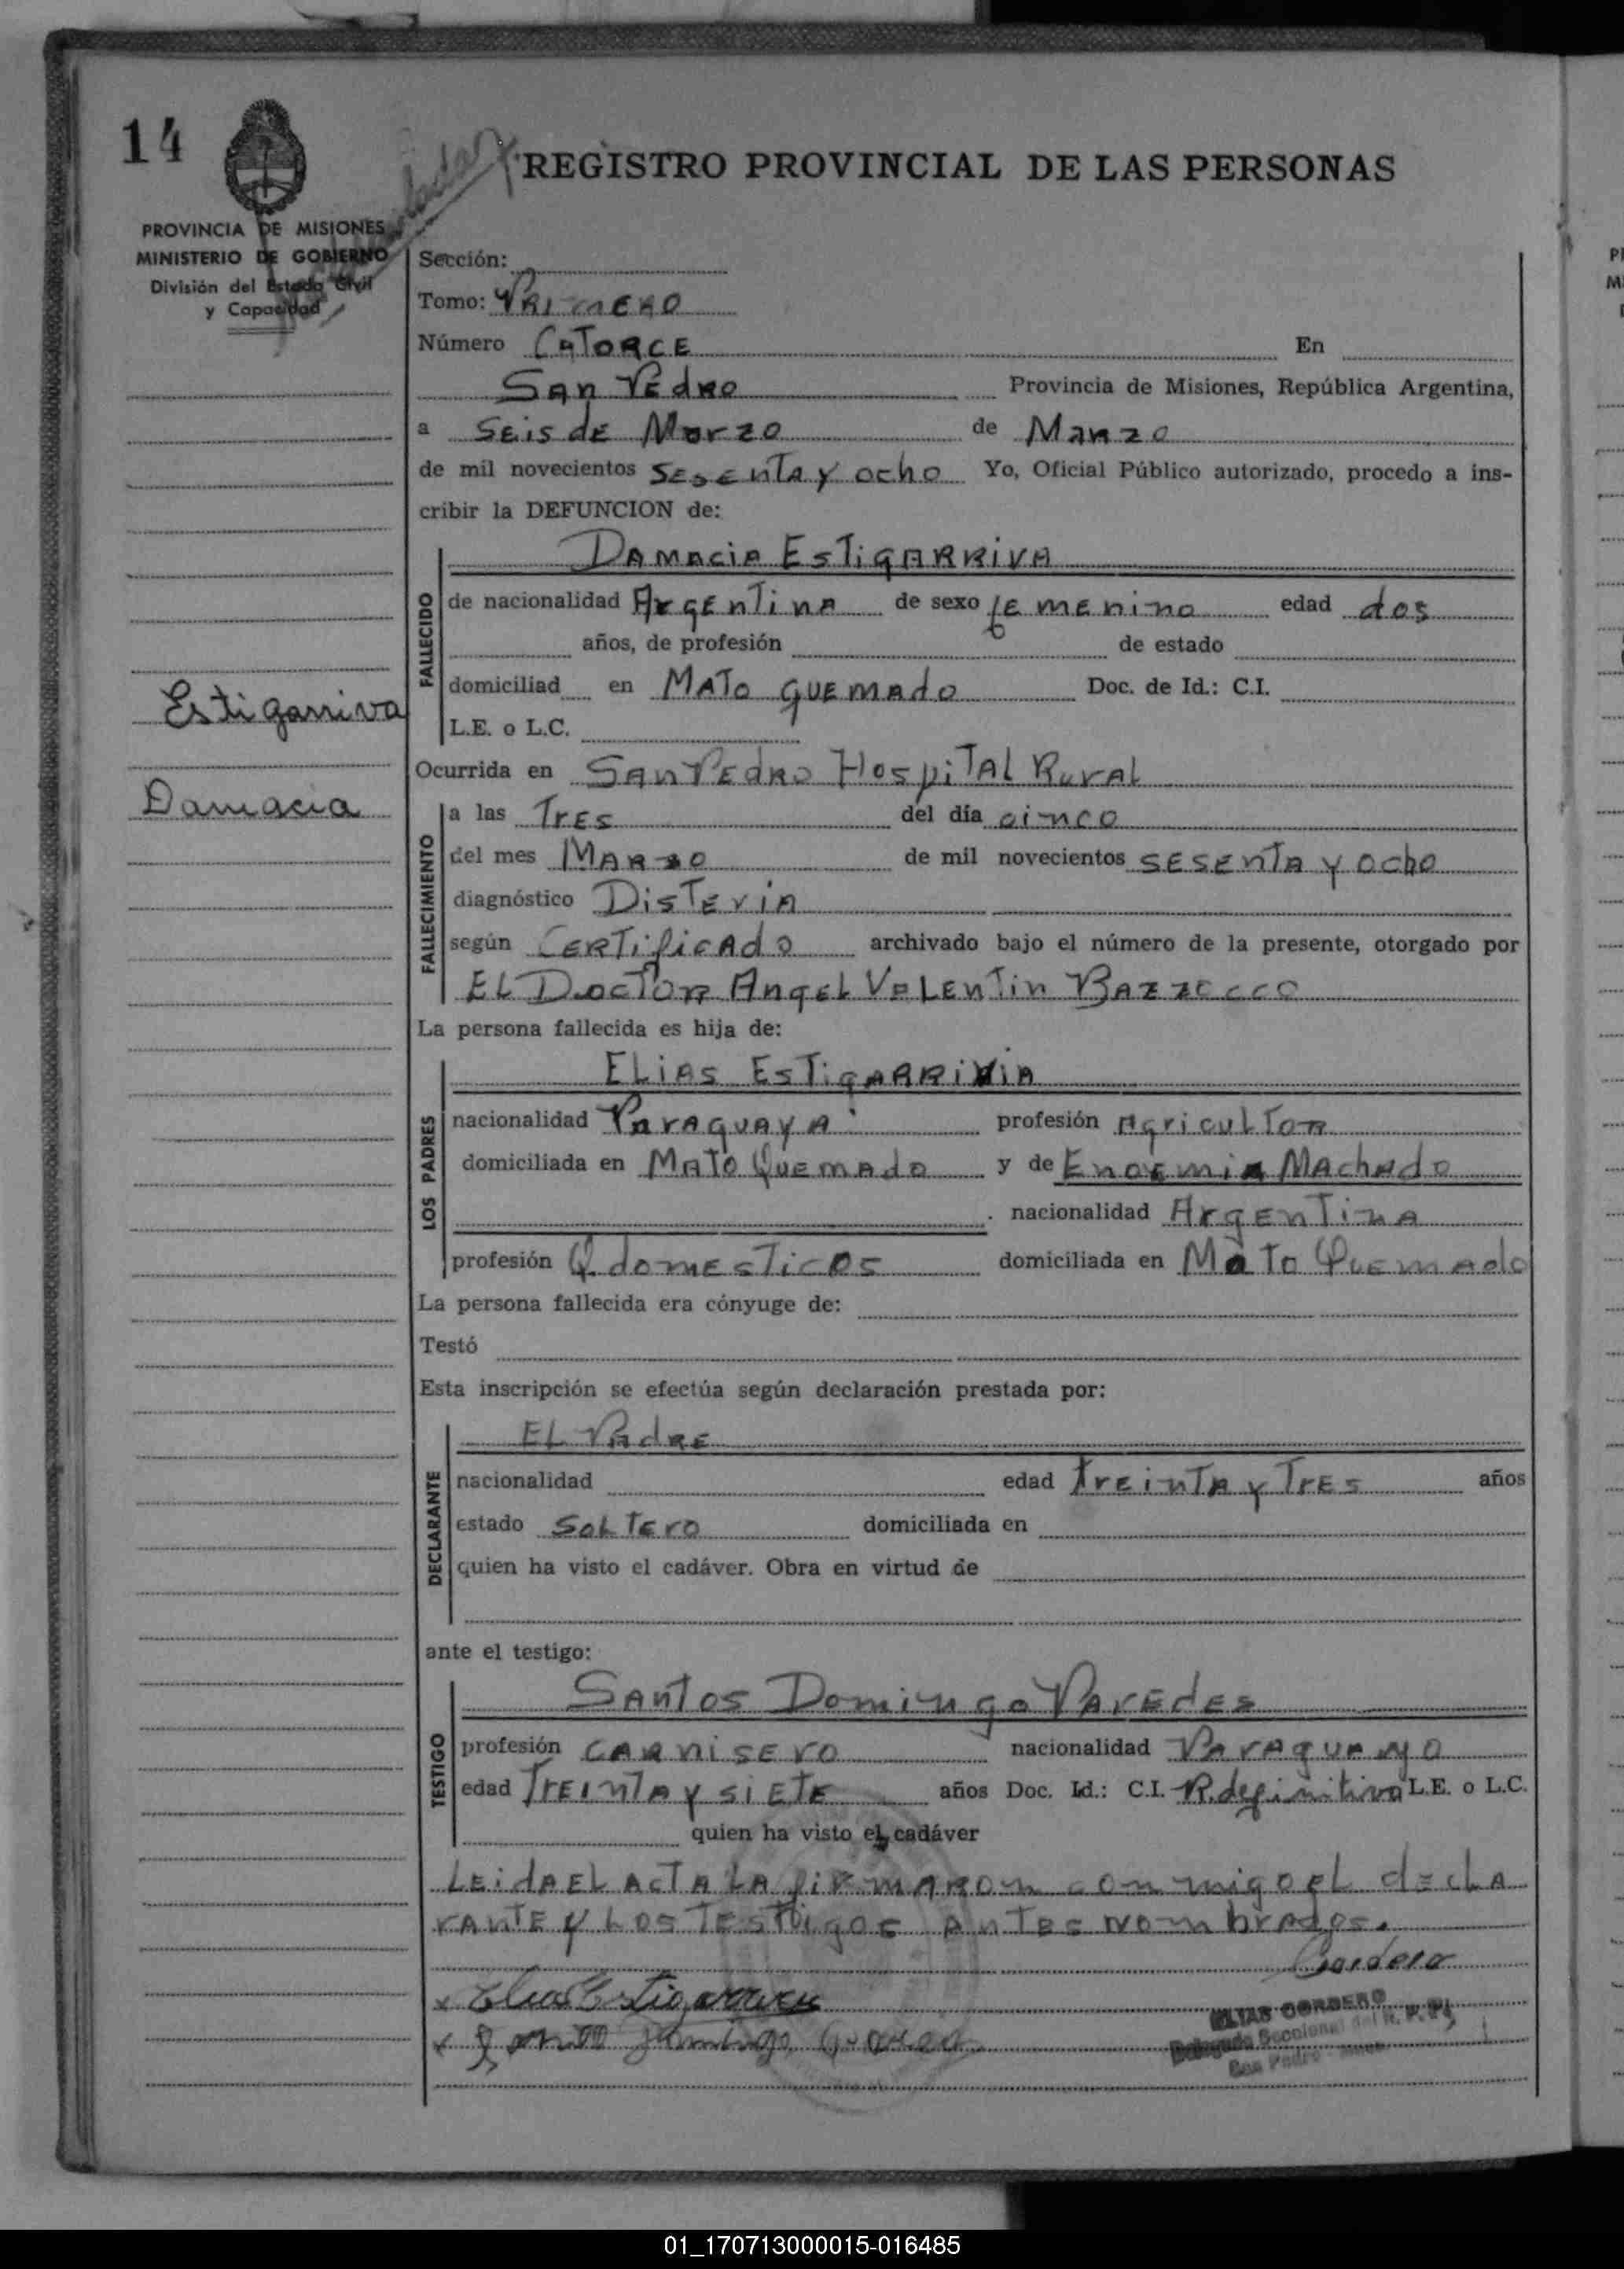 14
REGISTRO PROVINCIAL DE LAS PERSONAS
PROVINCIA DE MISIONES
MINISTERIO DE GOBIERNO
División del Estado Civil
y Capacidad
Sección:
Tomo: PRIMERO
Número CATORCE En
San Pedro Provincia de Misiones, República Argentina,
a SEis dE Marzo de MARzo
de mil novecientos SESENTA y ocho Yo, Oficial Público autorizado, procedo a ins-
cribir la DEFUNCION de:
DAMACIA ESTIGARRIVA
FALLECIDO
de nacionalidad ArgEnTinA de sexo fEmEnino edad dos
años, de profesión de estado
domiciliad en MATo QUEmAdo Doc. de Id.: C.I.
L.E. o L.C.
Estigarriva
Damacia
Ocurrida en SAn PEdRo HospiTAL RurAL
FALLECIMIENTO
a las TrEs del día cinco
del mes MARzo de mil novecientos SESEnTA y ocho
diagnóstico DisTEriA
según CERTificAdo archivado bajo el número de la presente, otorgado por
EL DocTor AngEL VALEnTin
La persona fallecida es hija de:
ELiAS ESTigARRiViA
LOS PADRES
nacionalidad PARAGUAYA profesión AgricuLTor
domiciliada en MATo QuEmAdo y de EnoEmiA MAchAdo
nacionalidad ArgEnTinA
profesión Q. domESTicos domiciliada en MaTo QuEmAdo
La persona fallecida era cónyuge de:
Testó
Esta inscripción se efectúa según declaración prestada por:
EL PAdRE
DECLARANTE
nacionalidad edad TrEinTA y TrEs años
estado SoLTEro domiciliada en
quien ha visto el cadáver. Obra en virtud de
ante el testigo:
SAnTos Domingo PArEdEs
TESTIGO
profesión CARniSEro nacionalidad PArAguAyo
edad TrEinTA y siETE años Doc. Id.: C.I. R. definitiva L.E. o L.C.
quien ha visto el cadáver
LEidA EL ACTA LA firmARon conmigo EL dEcLA
rAnTE y Los TEsTigos AnTES nombrAdos.
Cordero
x Elias
x Domingo
ELIAS CORDERO
Delegado Seccional del R. P. P.
San Pedro
01_170713000015-016485